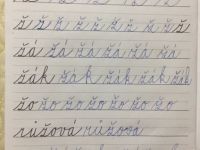 ž ž ž ž ž ž ž ž ž ž
žá žá žá žá žá žá
žák žák žák žák žák
žo žo žo žo žo žo
růžová růžová